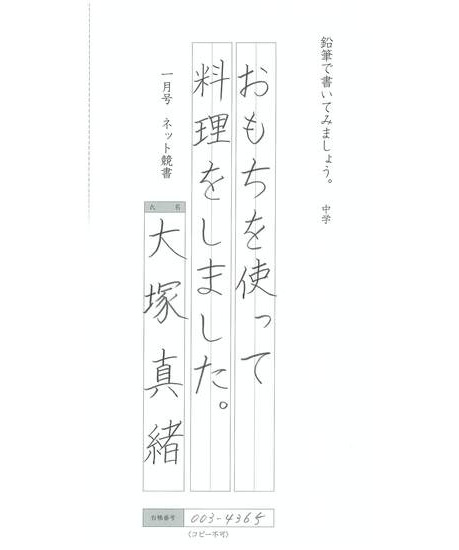 鉛筆で書いてみましょう。 中学
おもちを使って
料理をしました。
一月号 ネット競書
氏 名
大塚真緒
有機番号 003-4365
(コピー不可)